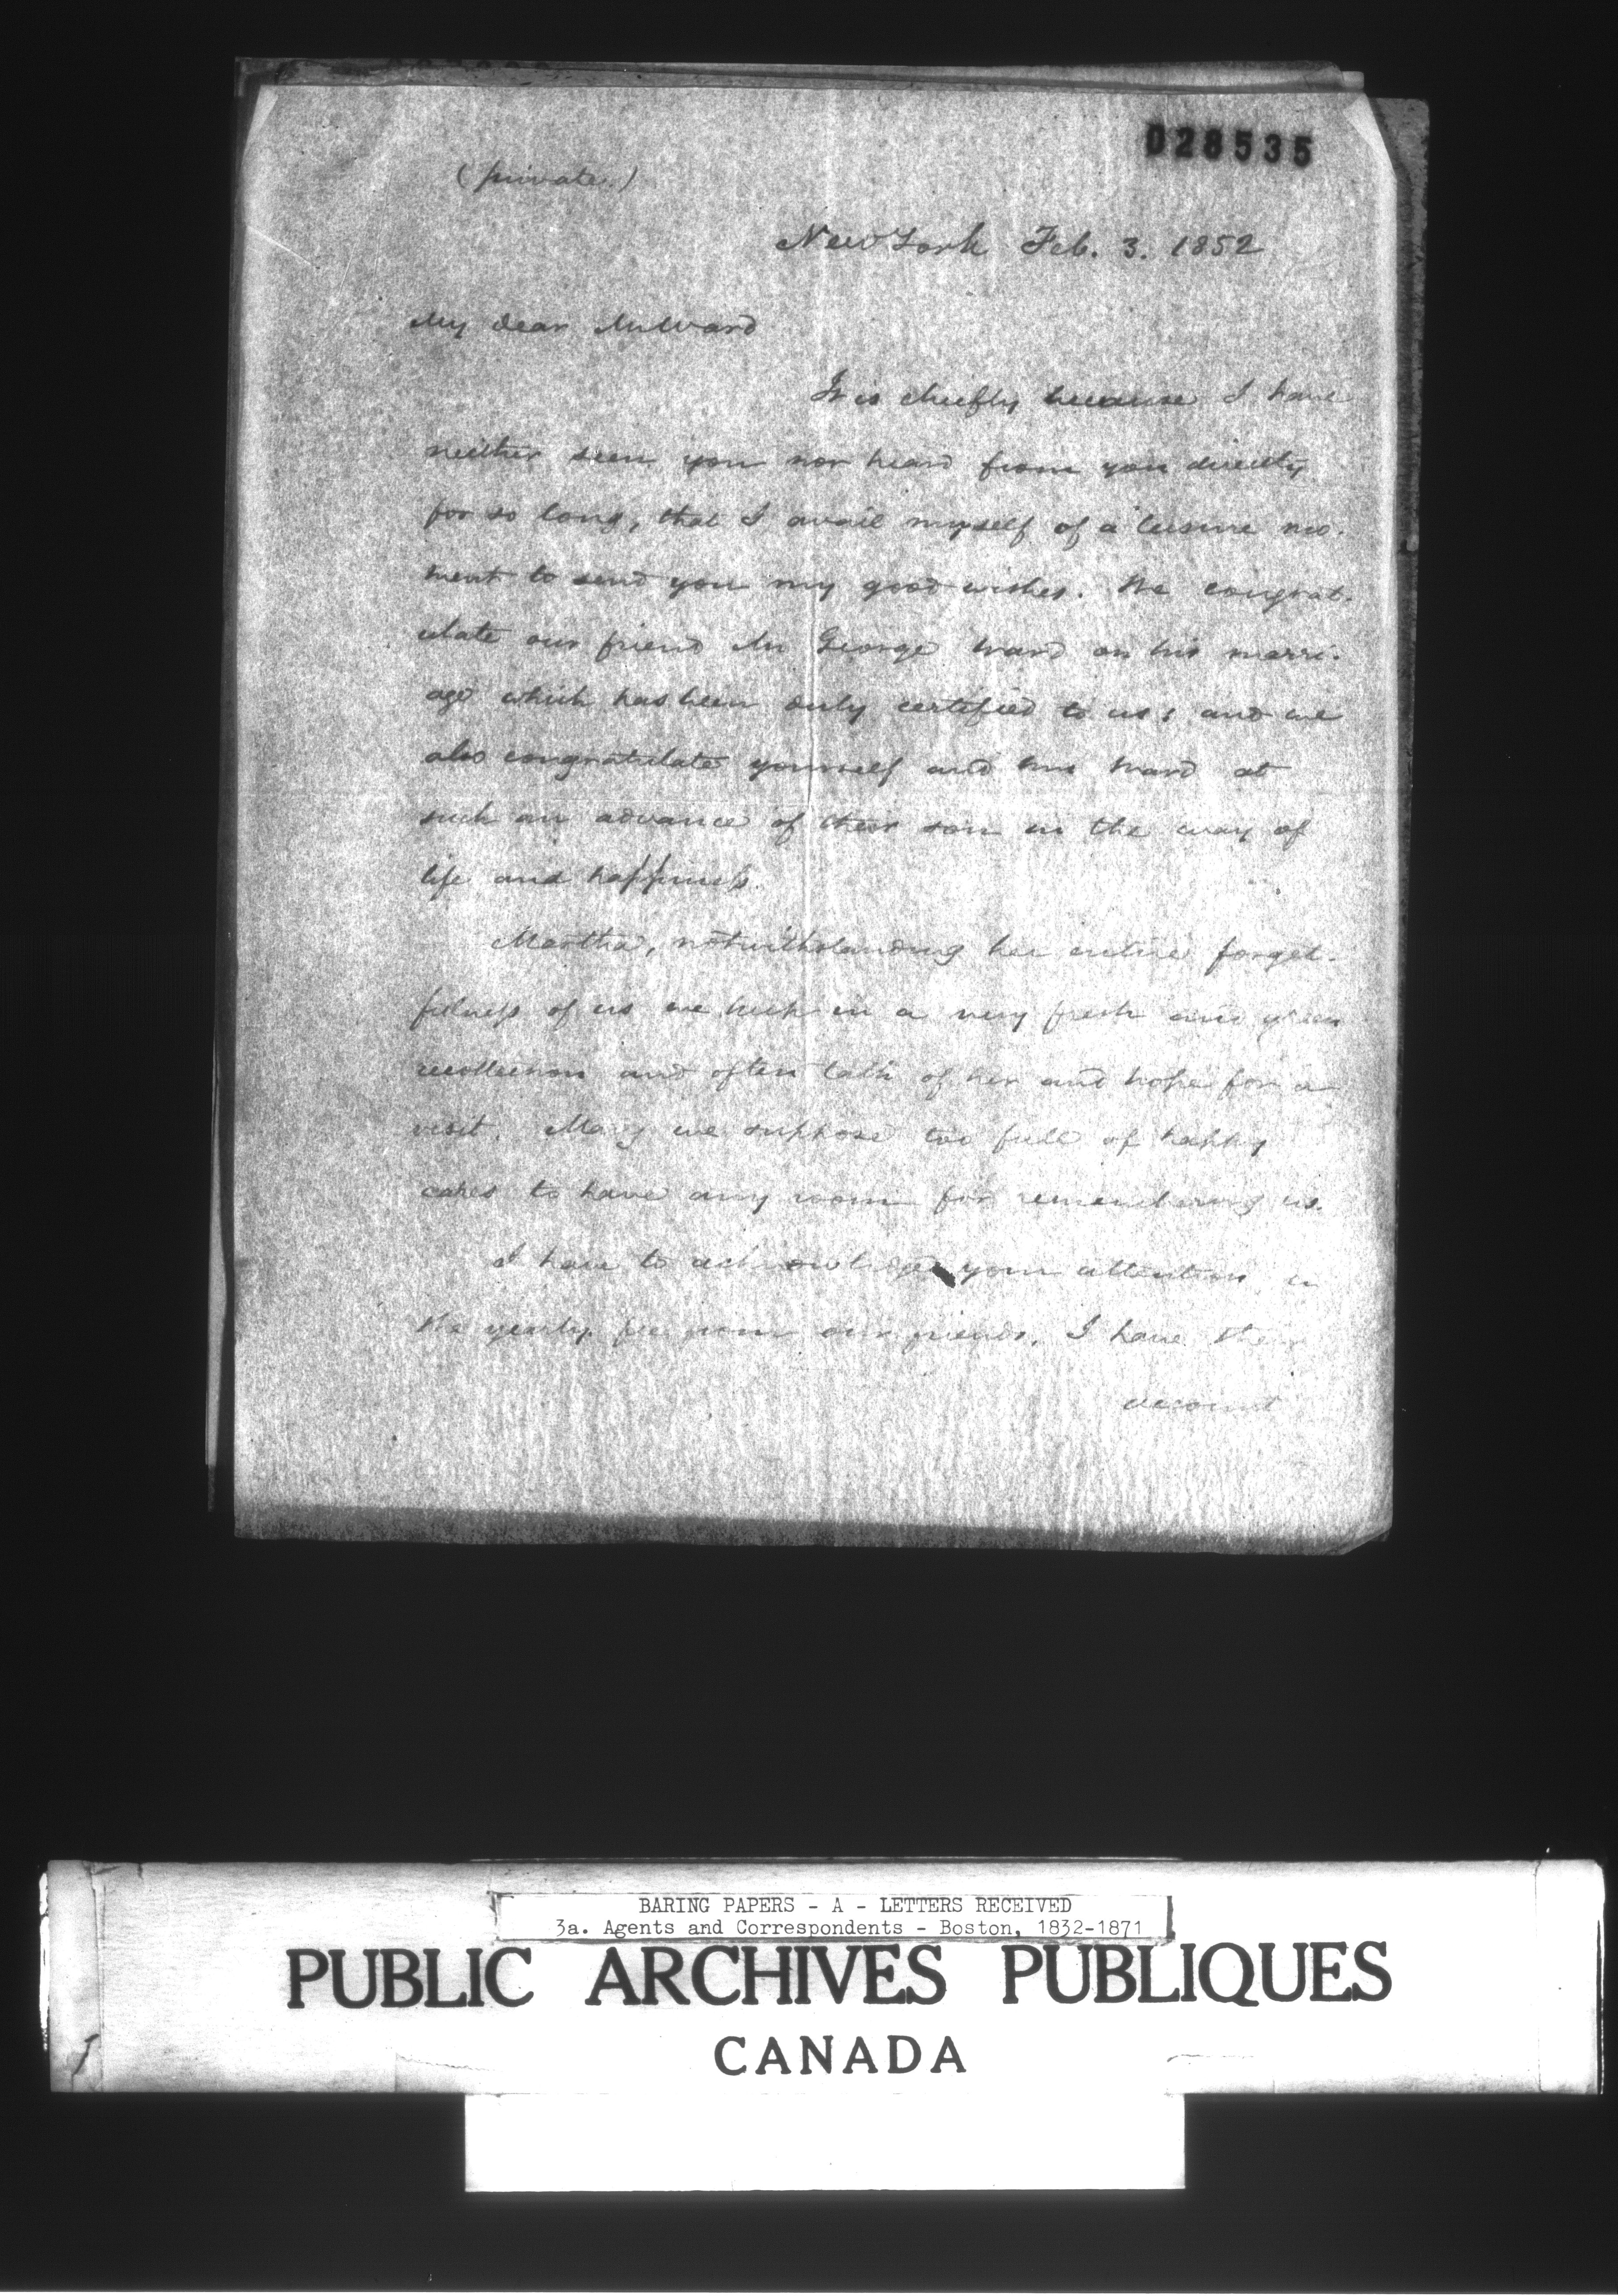 028535
(private)
New York Feb. 3. 1852
My dear Mr Ward
It is chiefly because I have
neither seen you nor heard from you directly
for so long, that I avail myself of a leisure mo-
ment to send you my good wishes. We congrat-
ulate our friend Mr George Ward on his marri-
age which has been duly certified to us; and we
also congratulate yourself and Mrs Ward at
such an advance of their son in the way of
life and happiness.
Martha, notwithstanding her entire forget-
fulness of us we keep in a very fresh and green
recollection and often talk of her and hope for a
visit. Mary we suppose too full of happy
cares to have any room for remembering us.
I have to acknowledge your attention in
the yearly fee from our friends. I have their
account
BARING PAPERS - A - LETTERS RECEIVED
3a. Agents and Correspondents - Boston, 1832-1871
PUBLIC ARCHIVES PUBLIQUES
CANADA